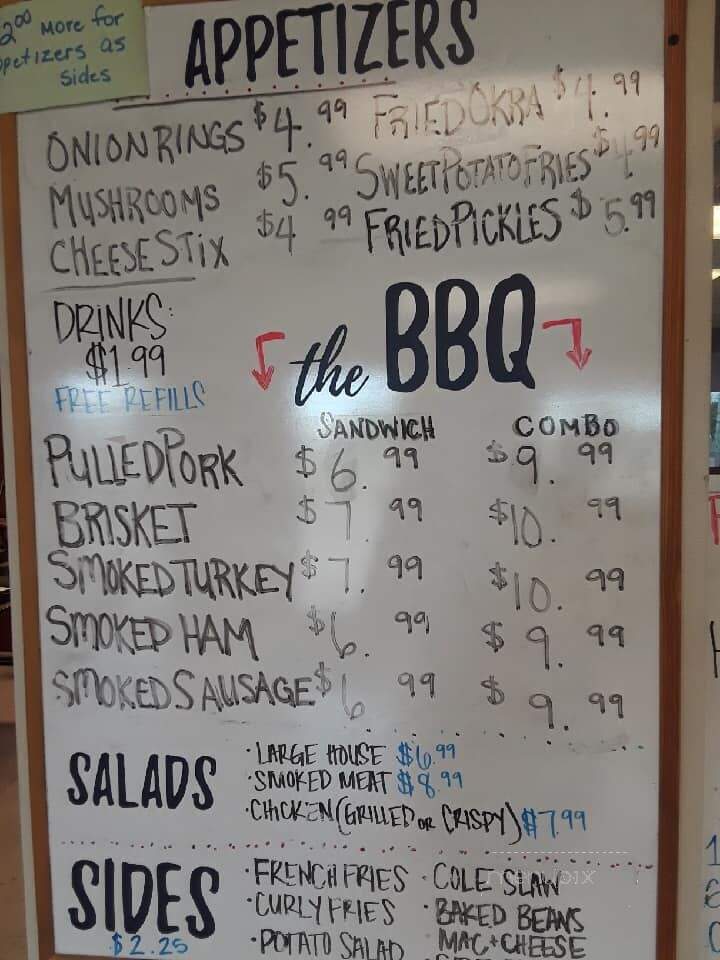 2.00 More for
ppetizers as
sides
APPETIZERS
ONION RINGS $4.99 FRIED OKRA $4.99
MUSHROOMS $5.99 SWEET POTATO FRIES $4.99
CHEESE STIX $4 99 FRIED PICKLES $5.99
DRINKS:
$1.99
FREE REFILLS
the BBQ
SANDWICH COMBO
PULLED PORK $6.99 $9.99
BRISKET $7.99 $10.99
SMOKED TURKEY $7.99 $10.99
SMOKED HAM $6.99 $9.99
SMOKED SAUSAGE $6 99 $9.99
SALADS
·LARGE HOUSE $6.99
·SMOKED MEAT $8.99
·CHICKEN (GRILLED OR CRISPY) $7.99
SIDES
$2.25
·FRENCH FRIES ·COLE SLAW
·CURLY FRIES ·BAKED BEANS
·POTATO SALAD MAC+CHEESE